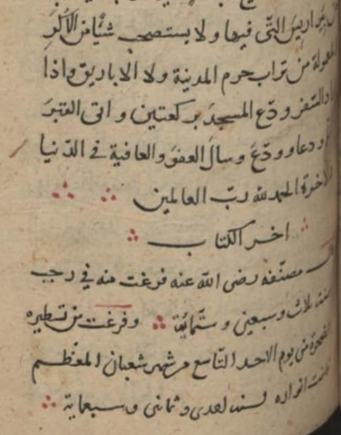 التى فيها ولا يستصحب شيًا من الأكر
المعمولة من تراب حرم المدينة ولا الاباريق واذا
السفر ودّع المسجد بركعتين واتى القبر
ودعا وودّع وسال العفو والعافية فى الدنيا
والاخرة الحمد لله رب العالمين
اخر الكتاب
مصنّفه رضى الله عنه فرغت منه فى رجب
سنة ثلاث وسبعين وستمائة وفرغت من تسطيره
ضحوة من يوم الاحد التاسع من شهر شعبان المعظم
لسنة احدى وثمانى وسبعماية